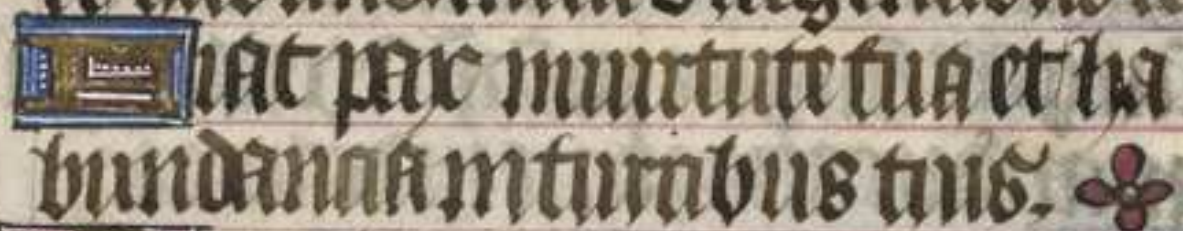 Fiat pax in uirtute tua et ha
bundancia in turribus tuis.